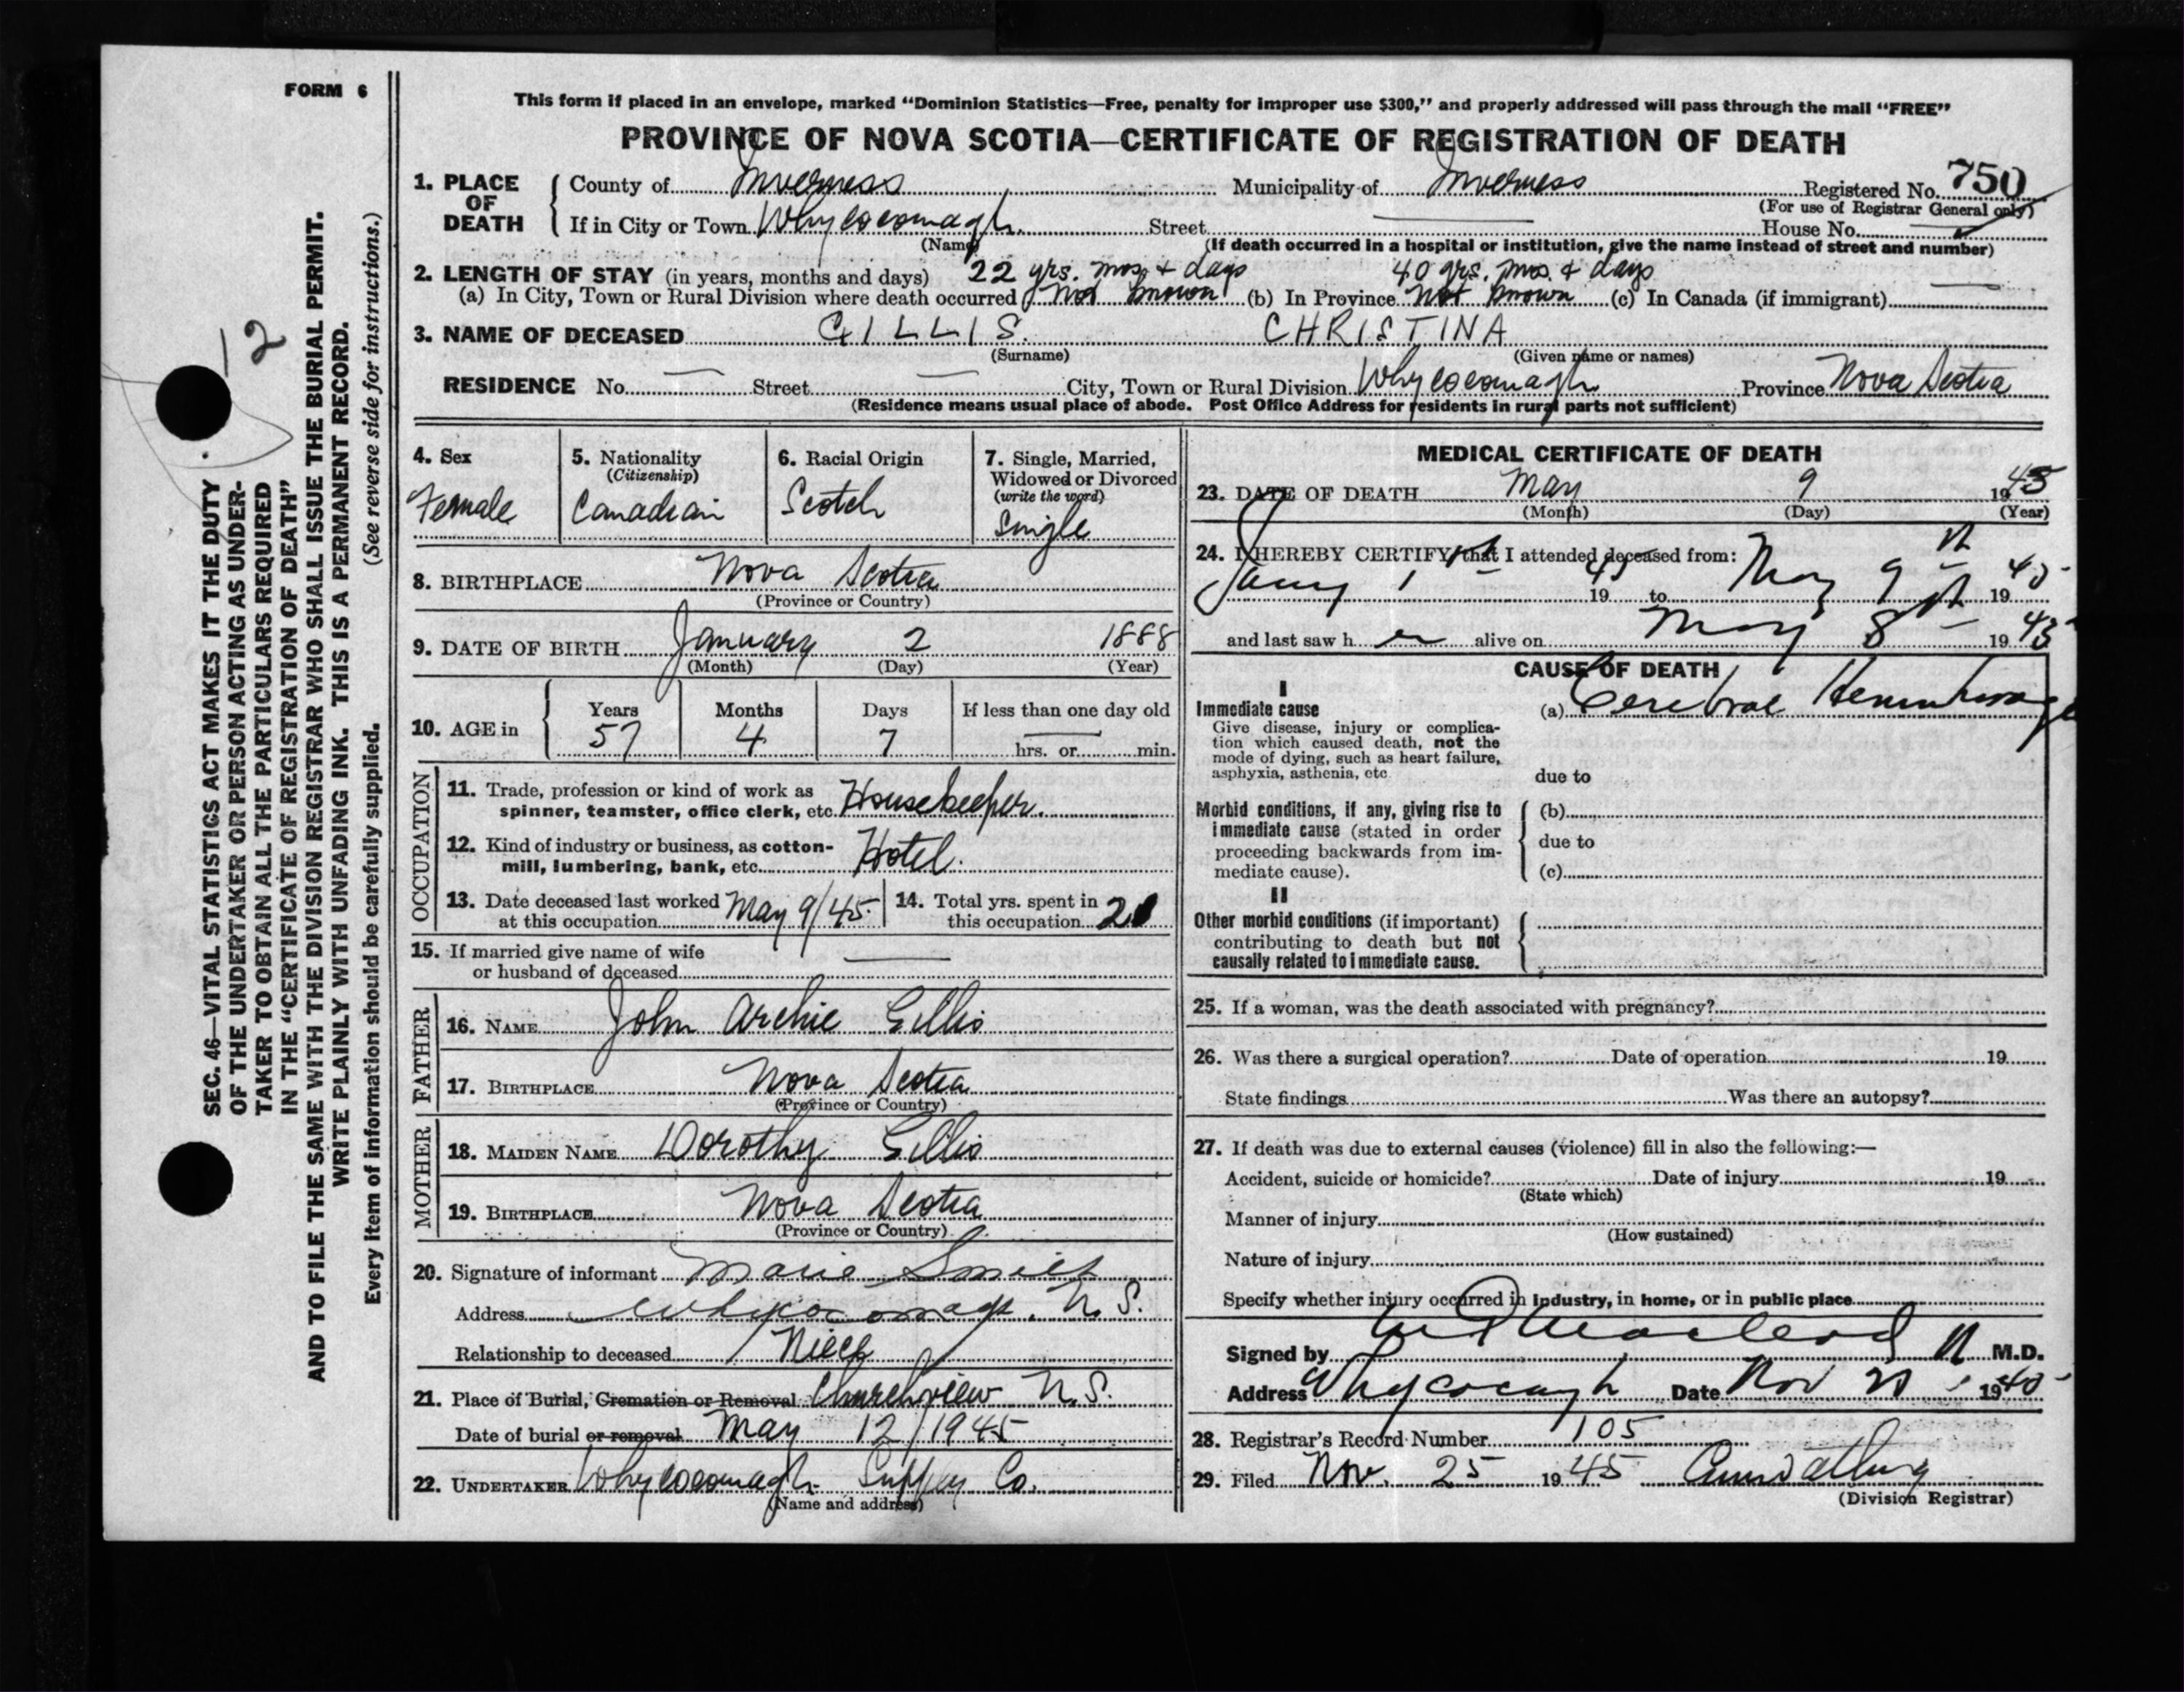 FORM 6
This form if placed in an envelope, marked "Dominion Statistics—Free, penalty for improper use $300," and properly addressed will pass through the mail "FREE"
PROVINCE OF NOVA SCOTIA—CERTIFICATE OF REGISTRATION OF DEATH
1. PLACE OF DEATH County of Inverness Municipality of Inverness Registered No. 750
(For use of Registrar General only)
If in City or Town Whycocomagh. Street — House No. —
(Name) (If death occurred in a hospital or institution, give the name instead of street and number)
2. LENGTH OF STAY (in years, months and days) 22 yrs. mos + days 40 yrs. mos. + days
(a) In City, Town or Rural Division where death occurred not known (b) In Province not known (c) In Canada (if immigrant) —
3. NAME OF DECEASED GILLIS. CHRISTINA
(Surname) (Given name or names)
RESIDENCE No. — Street — City, Town or Rural Division Whycocomagh Province Nova Scotia
(Residence means usual place of abode. Post Office Address for residents in rural parts not sufficient)
4. Sex 5. Nationality 6. Racial Origin 7. Single, Married,
(Citizenship) Widowed or Divorced
(write the word)
Female Canadian Scotch Single
8. BIRTHPLACE Nova Scotia
(Province or Country)
9. DATE OF BIRTH January 2 1888
(Month) (Day) (Year)
10. AGE in Years Months Days If less than one day old
57 4 7 — hrs. or min.
OCCUPATION
11. Trade, profession or kind of work as
spinner, teamster, office clerk, etc. Housekeeper.
12. Kind of industry or business, as cotton-
mill, lumbering, bank, etc. Hotel.
13. Date deceased last worked May 9/45. 14. Total yrs. spent in
at this occupation this occupation
15. If married give name of wife —
or husband of deceased
FATHER
16. NAME John Archie Gillis
17. BIRTHPLACE Nova Scotia
(Province or Country)
MOTHER
18. MAIDEN NAME Dorothy Gillis
19. BIRTHPLACE Nova Scotia
(Province or Country)
20. Signature of informant Marie Smith
Address Whycocomagh. N. S.
Relationship to deceased Niece
21. Place of Burial, Cremation or Removal Churchview N.S.
Date of burial or removal May 12/1945
22. UNDERTAKER Whycocomagh Supply Co.
(Name and address)
MEDICAL CERTIFICATE OF DEATH
23. DATE OF DEATH May 9 1945
(Month) (Day) (Year)
24. I HEREBY CERTIFY that I attended deceased from:
Jany 1st 1945 to May 9th 1945
and last saw her alive on May 8th 1945
CAUSE OF DEATH
I
Immediate cause (a) Cerebral Hemorrhage
Give disease, injury or complica-
tion which caused death, not the
mode of dying, such as heart failure,
asphyxia, asthenia, etc. due to
Morbid conditions, if any, giving rise to (b)
immediate cause (stated in order
proceeding backwards from im- due to
mediate cause). (c)
II
Other morbid conditions (if important)
contributing to death but not
causally related to immediate cause.
25. If a woman, was the death associated with pregnancy?
26. Was there a surgical operation? Date of operation 19
State findings Was there an autopsy?
27. If death was due to external causes (violence) fill in also the following:—
Accident, suicide or homicide? Date of injury 19
(State which)
Manner of injury
(How sustained)
Nature of injury
Specify whether injury occurred in Industry, in home, or in public place
Signed by MacLeod M.D.
Address Whycocough Date Nov 20 1945
28. Registrar's Record Number 105
29. Filed Nov. 25 1945
(Division Registrar)
SEC. 46—VITAL STATISTICS ACT MAKES IT THE DUTY
OF THE UNDERTAKER OR PERSON ACTING AS UNDER-
TAKER TO OBTAIN ALL THE PARTICULARS REQUIRED
IN THE "CERTIFICATE OF REGISTRATION OF DEATH"
AND TO FILE THE SAME WITH THE DIVISION REGISTRAR WHO SHALL ISSUE THE BURIAL PERMIT.
WRITE PLAINLY WITH UNFADING INK. THIS IS A PERMANENT RECORD.
Every item of information should be carefully supplied. (See reverse side for instructions.)